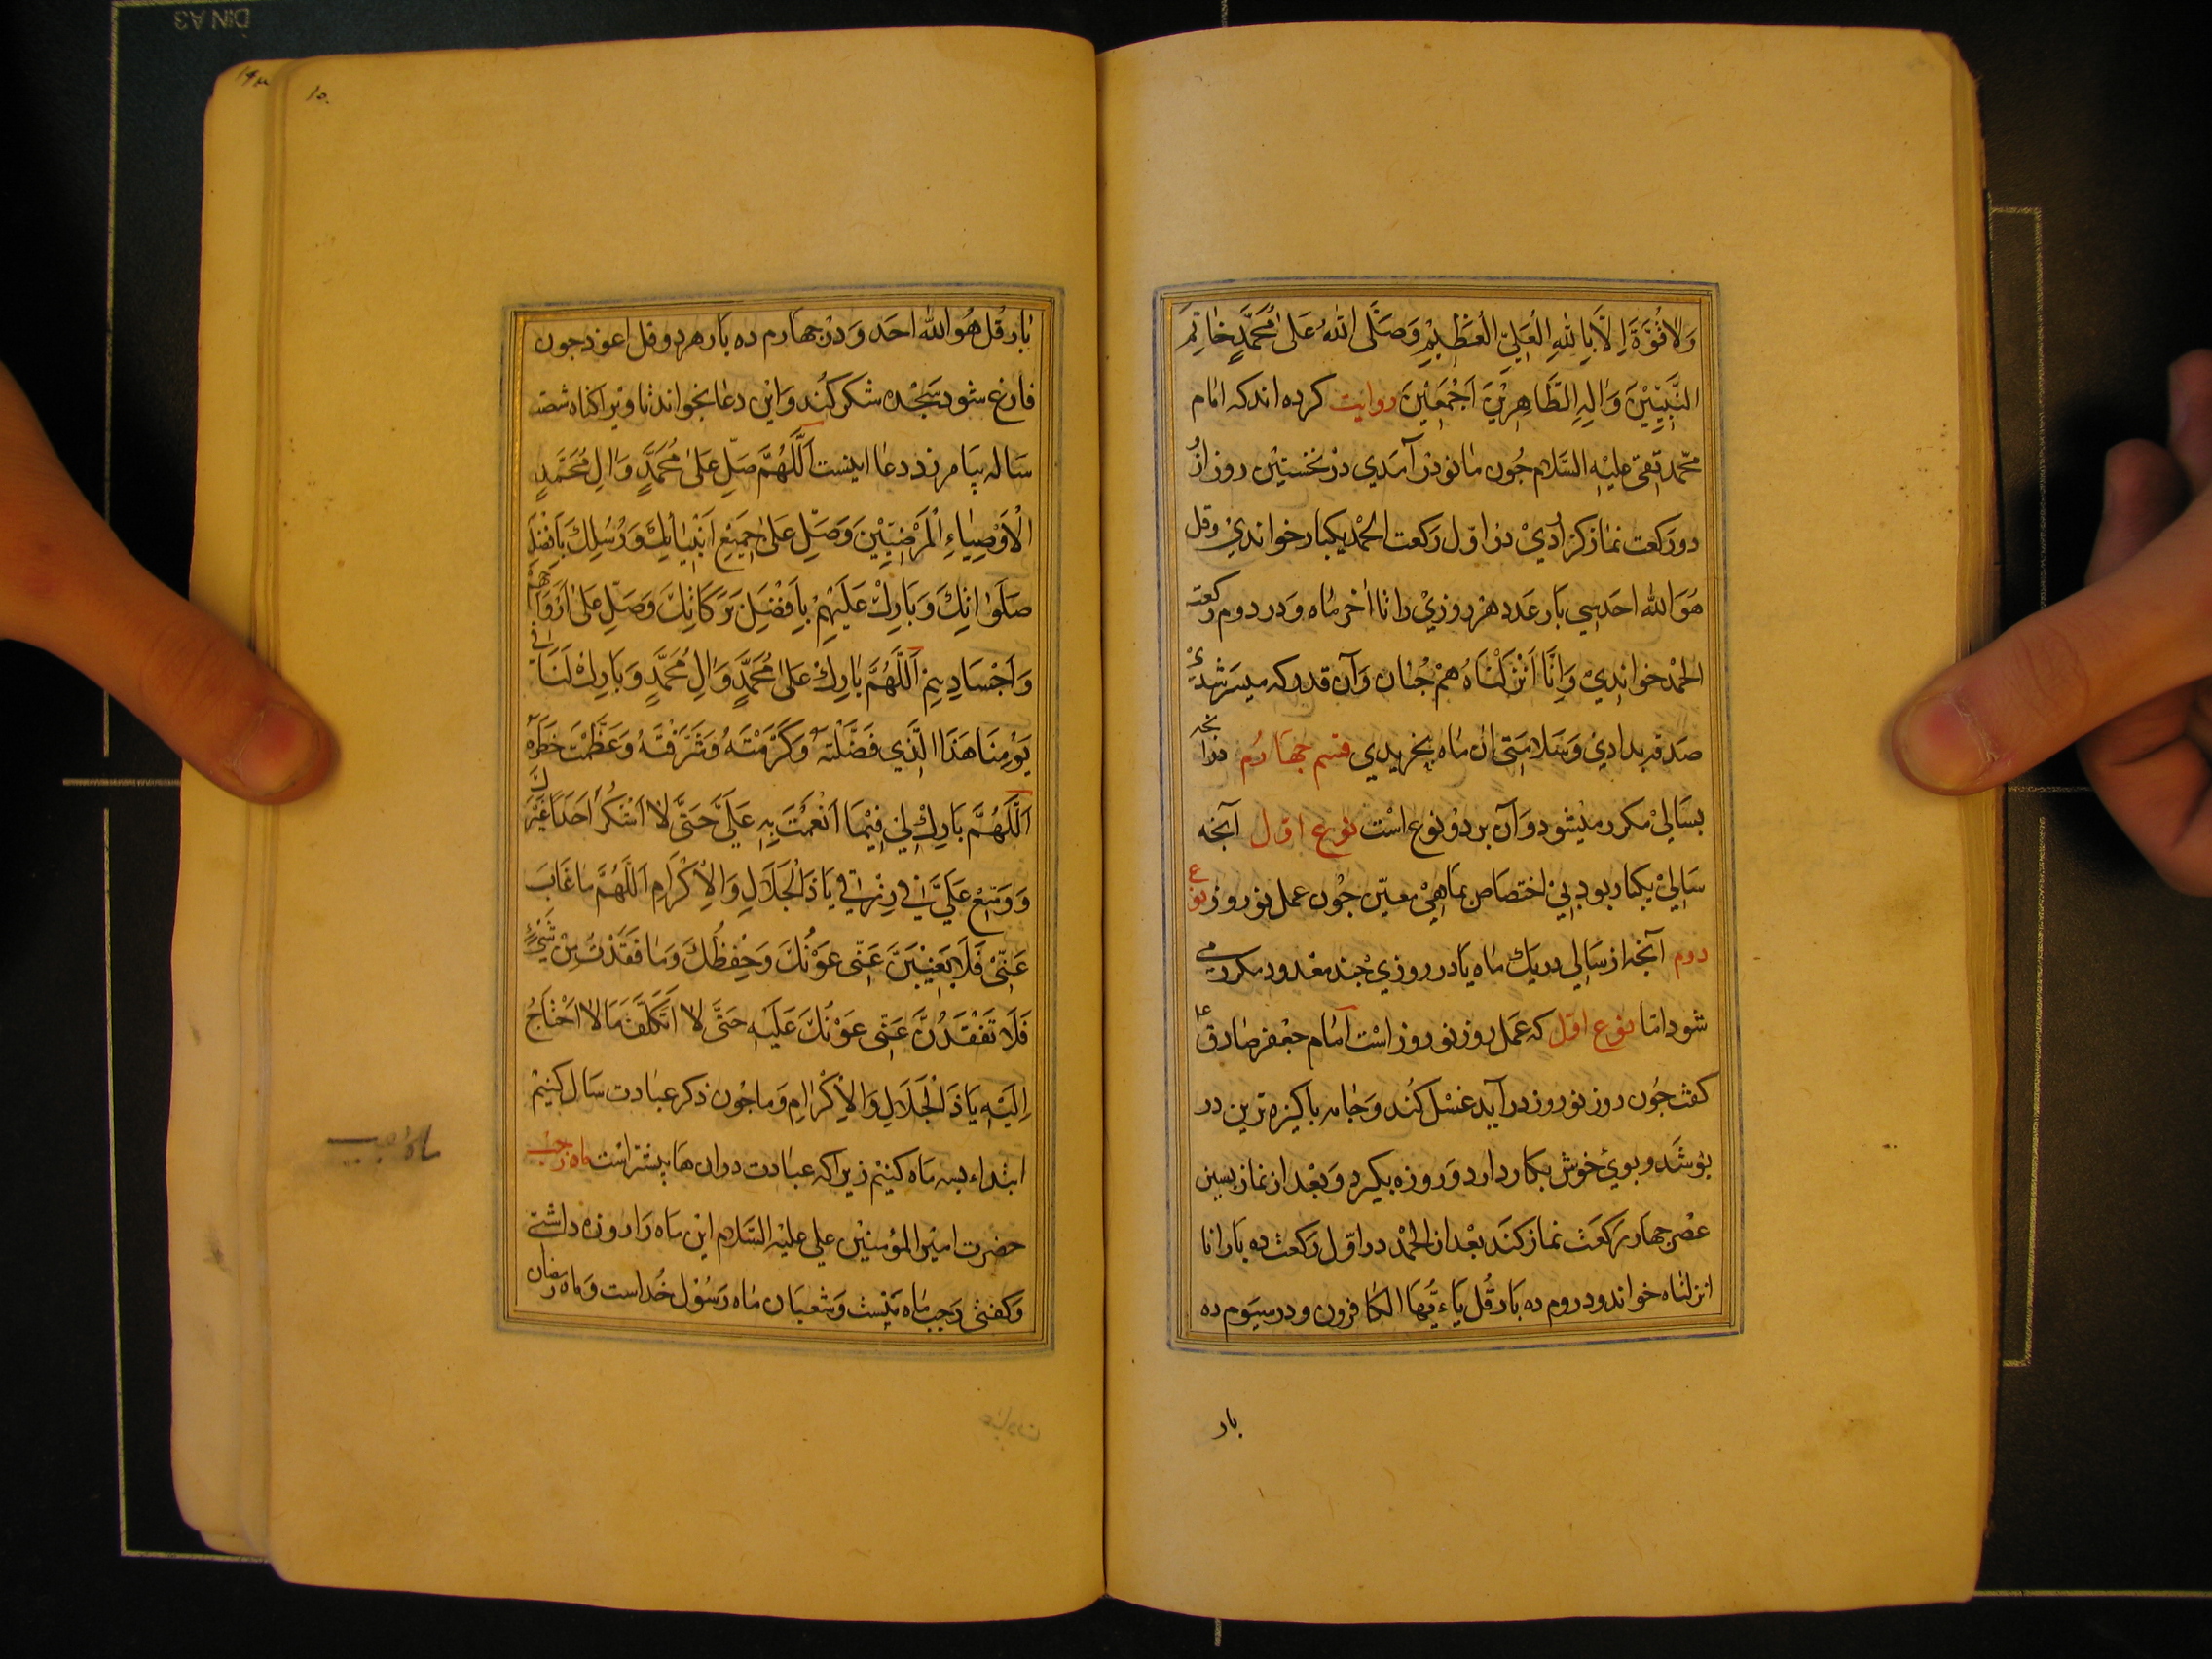 وَلَا قُوَّةَ اِلَّا بِاللهِ الْعَلِيِّ الْعَظِيْمِ وَصَلَّى اللهُ عَلىٰ مُحَمَّدٍ خَاتِمِ
النَّبِيِّيْنَ وَاٰلِهِ الطَّاهِرِيْنَ اَجْمَعِيْنَ روايت كرده اند كه امام
محمد تقى عليه السَّلام جُون ماه نو در آمدي در نخستين روز از
دو ركعت نماز كزاردي در اوّل ركعت الحمد يكبار خواندي وقل
هُوَ الله احد سي بار عدد هر روزي را تا اخر ماه و در دوم ركعت
الحمد خواندي وَ اِنَّا اَنْزَلْنَاهُ هم جُنان وَ آن قدر كه ميسر شدي
صدقه بدادي وَ سَلامتى آن ماه بخريدي قسم جهارُم آنجه در
بسَالي مكرر ميشود وَ آن بر دو نوع است نوع اوّل آنجه
سَالي يكبار بود بي اختصاص بماهي معين جُون عمل نوروز نوع
دوم آنجه از سَالي در يك ماه يا در روزي جند معدود مكرر مي
شود امّا نوع اوّل كه عَمَل روز نوروز است امام جعفر صادق ع
كفت جُون روز نوروز در آيد غسل كُند وَ جامه باكيزه ترين در
بوشَد و بوي خوش بكار دارد وَ روزه بكيرد وَ بَعْد از نماز بسين
عصر جهار ركعَت نماز كَند بعد از الحمد در اوّل ركعت ده بار انا
انزلناه خواند و در دوم ده بار قُل يَاءَ يُّهَا الكافرون و در سيوم ده
بار
١٥٠
بار قُل هُوَ الله احد وَ در جهارم ده بار هر دو قل اعوذ جون
فارغ شود سَجْده شكر كُند وَ اين دعا بخواند تا ويرا كناه شصت
سَاله بيامرزد دعا اينست اَللّٰهُمَّ صَلِّ عَلىٰ مُحَمَّدٍ وَ اٰلِ مُحَمَّدٍ
الْاَوْصِيَاءِ الْمَرْضِيِّيْنَ وَصَلِّ عَلىٰ جَمِيْعِ اَنْبِيَائِكَ وَرُسُلِكَ بِاَفْضَلِ
صَلَوَاتِكَ وَبَارِكْ عَلَيْهِمْ بِاَفْضَلِ بَرَكَاتِكَ وَصَلِّ عَلىٰ اَرْوَاحِهِمْ
وَ اَجْسَادِهِمْ اَللّٰهُمَّ بَارِكْ عَلىٰ مُحَمَّدٍ وَاٰلِ مُحَمَّدٍ وَبَارِكْ لَنَا فِي
يَوْمِنَا هَذَا الَّذِي فَضَّلْتَهُ وَكَرَّمْتَهُ وَشَرَّفْتَهُ وَعَظَّمْتَ خَطَرَهُ
اَللّٰهُمَّ بَارِكْ لِي فِيْمَا اَنْعَمْتَ بِهِ عَلَيَّ حَتَّى لَا اَشْكُرَ اَحَدًا غَيْرَكَ
وَ وَسِّعْ عَلَيَّ فِي رِزْقِي يَا ذَا الْجَلَالِ وَالْاِكْرَامِ اَللّٰهُمَّ مَا غَابَ
عَنِّيْ فَلَا يَغِيْبَنَّ عَنِّي عَوْنُكَ وَحِفْظُكَ وَمَا فَقَدْتُ مِنْ شَيْءٍ
فَلَا تَفْقِدَنَّ عَنِّي عَوْنُكَ عَلَيْهِ حَتَّى لَا اَتَكَلَّفَ مَا لَا اَحْتَاجُ
اِلَيْهِ يَا ذَا الْجَلَالِ وَالْاِكْرَامِ وَ ما جُون ذكر عبادت سَال كنيم
ابتداء بسه مَاه كنيم زيرا كه عبادت در ان ها بيشتر است ماه رجب
حضرت امير المؤمنين علي عليه السَّلام اين ماه رَا روزه داشتي
وَ كفتي رَجب ماه منست وَ شعبان ماه رَسُول خُداست وَ ماه رمضان
ماه رجب